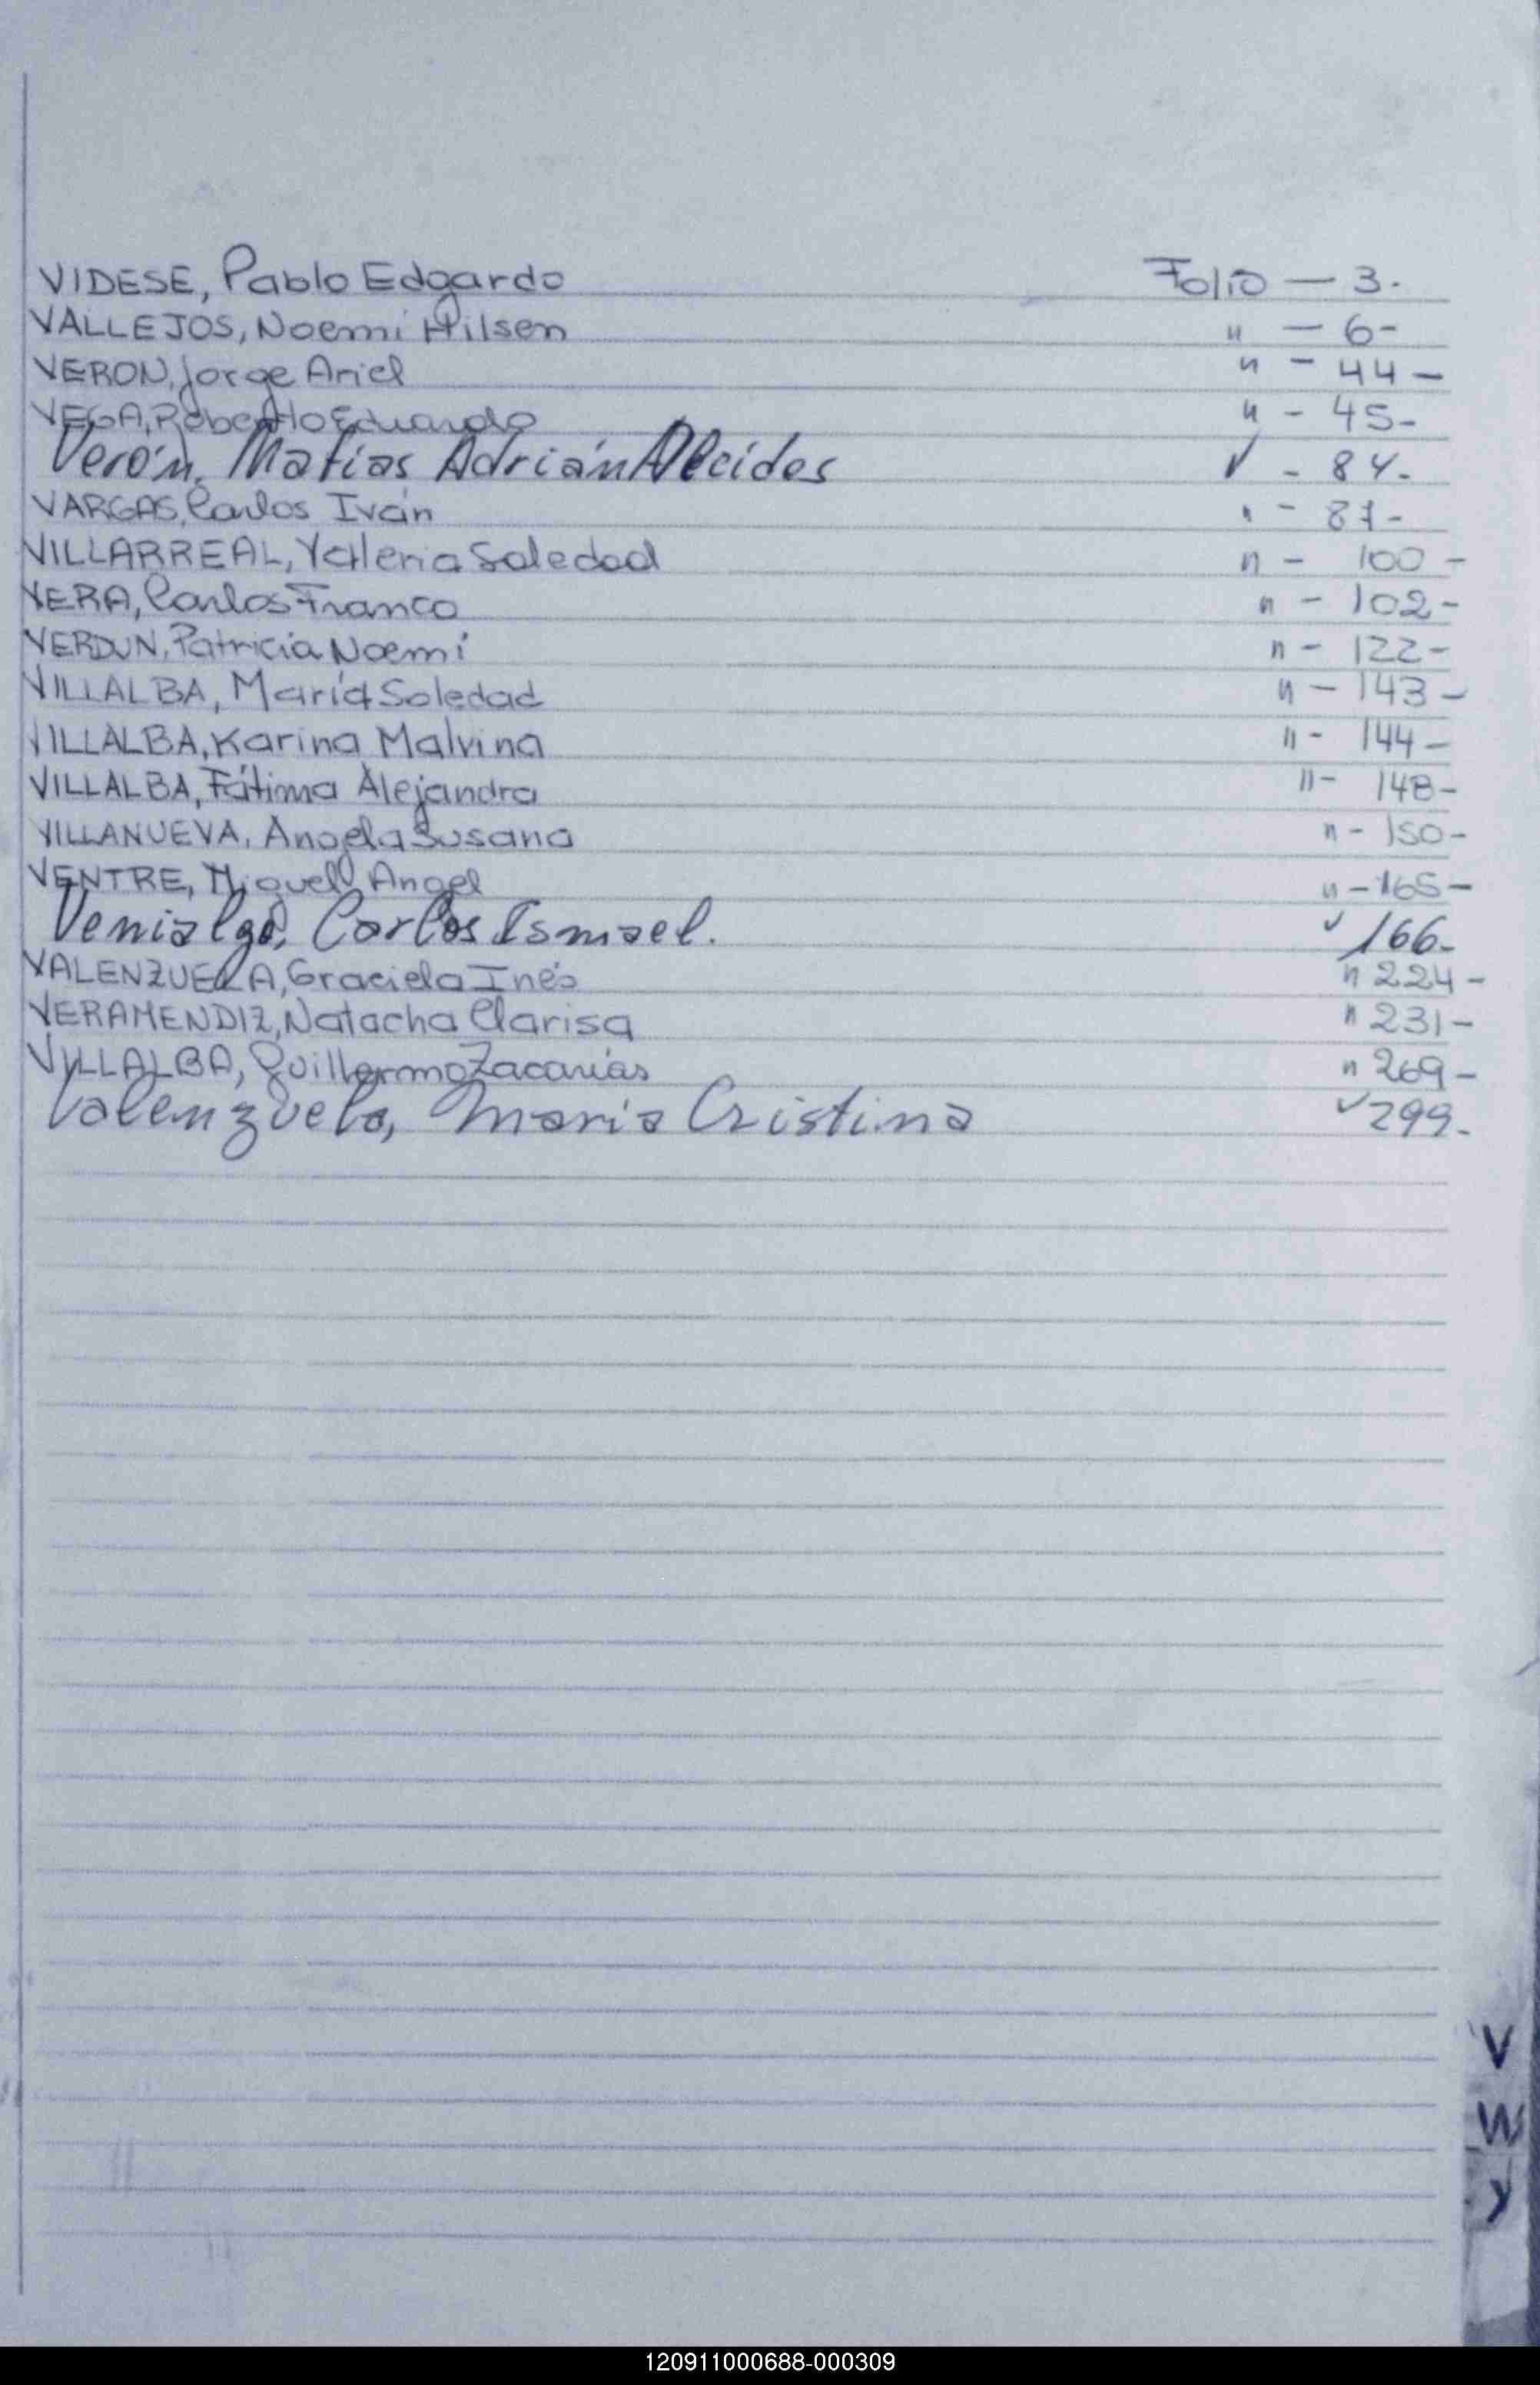 VIDESE, Pablo Edgardo Folio — 3.
VALLEJOS, Noemí Hilsen " — 6-
VERON, Jorge Ariel " - 44-
VEGA, Roberto Eduardo " - 45-
Verón, Matías Adrián Alcides " - 84.
VARGAS, Carlos Iván " - 87-
VILLARREAL, Valleria Soledad " - 100-
VERA, Carlos Franco " - 102-
VERDUN, Patricia Noemí " - 122-
VILLALBA, María Soledad " - 143-
VILLALBA, Karina Malvina " - 144-
VILLALBA, Fátima Alejandra " - 148-
VILLANUEVA, Angela Susana " - 150-
VENTRE, Miguel Angel " - 165-
Venialgo, Carlos Ismael. " 166-
VALENZUELA, Graciela Inés " 224-
VERAMENDIZ, Natacha Clarisa " 231-
VILLALBA, Guillermo Zacarías " 269-
Valenzuela, Maria Cristina " 299.
V
W
Y
120911000688-000309